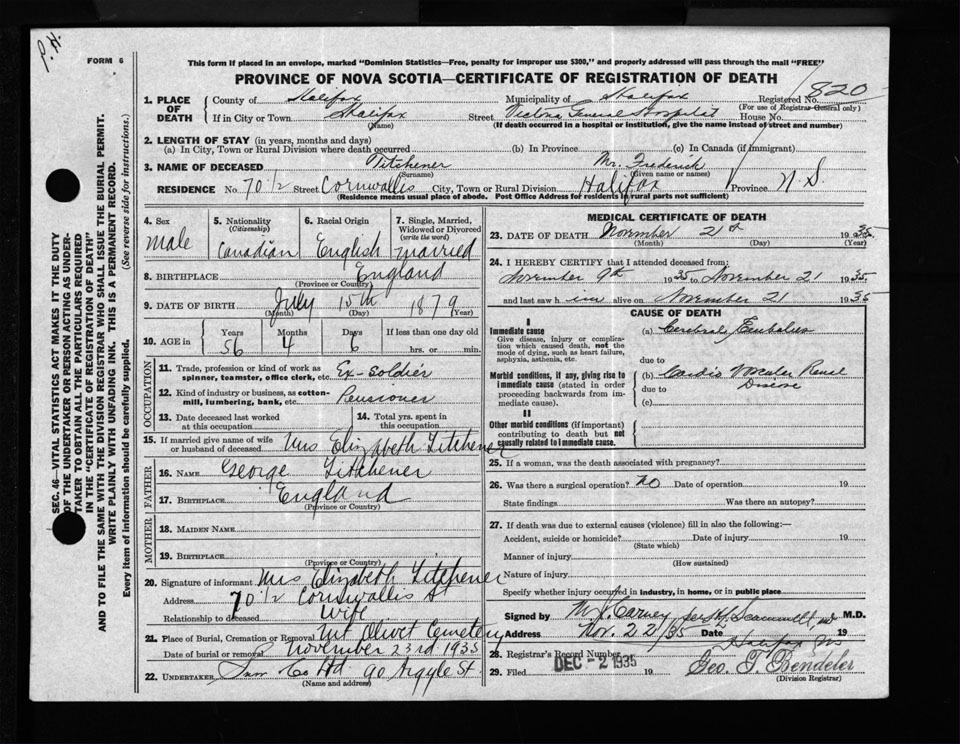 P. H.
FORM 6
This form if placed in an envelope, marked "Dominion Statistics—Free, penalty for improper use $300," and properly addressed will pass through the mail "FREE"
PROVINCE OF NOVA SCOTIA—CERTIFICATE OF REGISTRATION OF DEATH
1. PLACE OF DEATH
County of Halifax Municipality of Halifax Registered No. 820
(For use of Registrar-General only)
If in City or Town Halifax Street Victoria General Hospital House No.
(Name) (If death occurred in a hospital or institution, give the name instead of street and number)
2. LENGTH OF STAY (in years, months and days)
(a) In City, Town or Rural Division where death occurred (b) In Province (c) In Canada (if immigrant)
3. NAME OF DECEASED Titchener Mr. Frederick
(Surname) (Given name or names)
RESIDENCE No. 70 1/2 Street Cornwallis City, Town or Rural Division Halifax Province N. S.
(Residence means usual place of abode. Post Office Address for residents of rural parts not sufficient)
4. Sex
male
5. Nationality
(Citizenship)
Canadian
6. Racial Origin
English
7. Single, Married, Widowed or Divorced
(write the word)
married
8. BIRTHPLACE England
(Province or Country)
9. DATE OF BIRTH July 15th 1879
(Month) (Day) (Year)
10. AGE in
Years Months Days If less than one day old
56 4 6 hrs. or min.
OCCUPATION
11. Trade, profession or kind of work as spinner, teamster, office clerk, etc. Ex-Soldier
12. Kind of industry or business, as cotton-mill, lumbering, bank, etc. Pensioner
13. Date deceased last worked at this occupation
14. Total yrs. spent in this occupation
15. If married give name of wife or husband of deceased Mrs Elizabeth Titchener
FATHER
16. NAME George Titchener
17. BIRTHPLACE England
(Province or Country)
MOTHER
18. MAIDEN NAME
19. BIRTHPLACE
(Province or Country)
20. Signature of informant Mrs Elizabeth Titchener
Address 70 1/2 Cornwallis St
Relationship to deceased Wife
21. Place of Burial, Cremation or Removal Mt Olivet Cemetery
Date of burial or removal November 23rd 1935
22. UNDERTAKER Snow Co Ltd 90 Argyle St
(Name and address)
MEDICAL CERTIFICATE OF DEATH
23. DATE OF DEATH November 21st 1935
(Month) (Day) (Year)
24. I HEREBY CERTIFY that I attended deceased from:
November 9th 1935 to November 21 1935
and last saw him alive on November 21 1935
CAUSE OF DEATH
I
Immediate cause
Give disease, injury or complication which caused death, not the mode of dying, such as heart failure, asphyxia, asthenia, etc.
(a) Cerebral Embolus
due to
Morbid conditions, if any, giving rise to immediate cause (stated in order proceeding backwards from immediate cause).
(b) Cardio Vascular Renal Disease
due to
(c)
II
Other morbid conditions (if important) contributing to death but not causally related to immediate cause.
25. If a woman, was the death associated with pregnancy?
26. Was there a surgical operation? No Date of operation 19
State findings Was there an autopsy?
27. If death was due to external causes (violence) fill in also the following:—
Accident, suicide or homicide? Date of injury 19
(State which)
Manner of injury
(How sustained)
Nature of injury
Specify whether injury occurred in industry, in home, or in public place
Signed by M. J. Carney M.D.
Address Nov. 22/35 Date 19
Halifax NS
28. Registrar's Record Number
29. Filed DEC - 2 1935 19
(Division Registrar)
SEC. 46—VITAL STATISTICS ACT MAKES IT THE DUTY OF THE UNDERTAKER OR PERSON ACTING AS UNDERTAKER TO OBTAIN ALL THE PARTICULARS REQUIRED IN THE "CERTIFICATE OF REGISTRATION OF DEATH"
AND TO FILE THE SAME WITH THE DIVISION REGISTRAR WHO SHALL ISSUE THE BURIAL PERMIT.
WRITE PLAINLY WITH UNFADING INK. THIS IS A PERMANENT RECORD.
Every item of information should be carefully supplied. (See reverse side for instructions.)